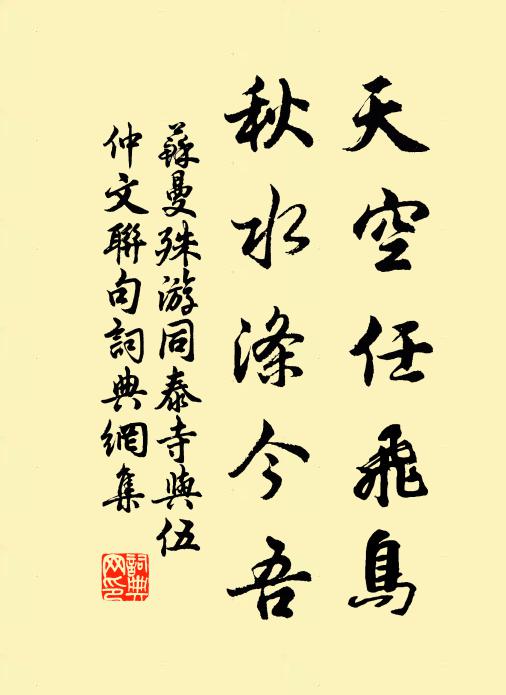 天空任飛鳥
秋水滌今吾
蘇曼殊游同泰寺與伍
仲文聯句詞典網集
詞典
网印